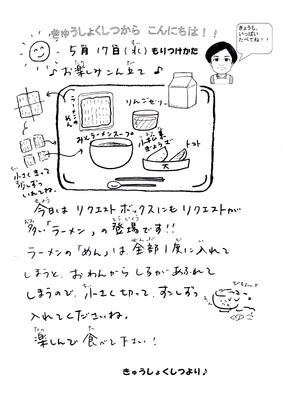 きゅうしょくしつから こんにちは！！
5月17日(水)もりつけカ
♪お楽しみこん立て♪
きょうも、
いっぱい
たべてね！！
ラーメンのめん
りんごゼリー
みそラーメンスープ
トマト
小さくきって
少しずつ
いれてね。
今日は リクエストボックスにもリクエストが
多い「ラーメン」の登場です!!
ラーメンの「めん」は全部1度に入れて
しまうと、おわんから しるがあふれて
しまうので、小さく切って、すこしずつ
入れてくださいね。
楽しんで食べて下さい！
きゅうしょくしつより♪